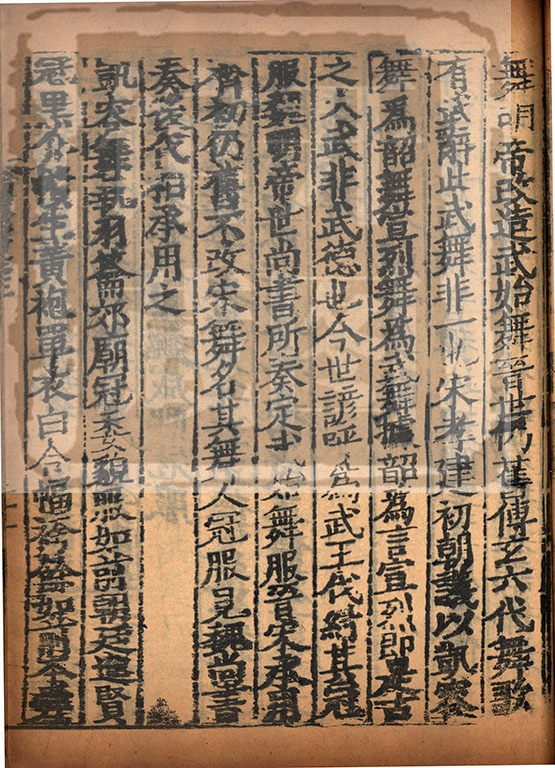 舞明帝改造武始舞晉世仍舊傅玄六代舞歌
有武辭此武舞非一也宋孝建初朝議以凱容
舞為韶舞宣烈舞為武舞據韶為言宣烈即是古
之大武非武德也今世諺呼為武王伐紂其冠
服魏明帝世尚書所奏定武始舞服晉宋承用
齊初仍舊不改宋舞名其舞人冠服見魏尚書
奏後代相承用之
凱容舞執羽籥郊廟冠委貌服如前朝廷進賢
冠黑介幘生黃袍單衣白合幅袴餘如前本舞